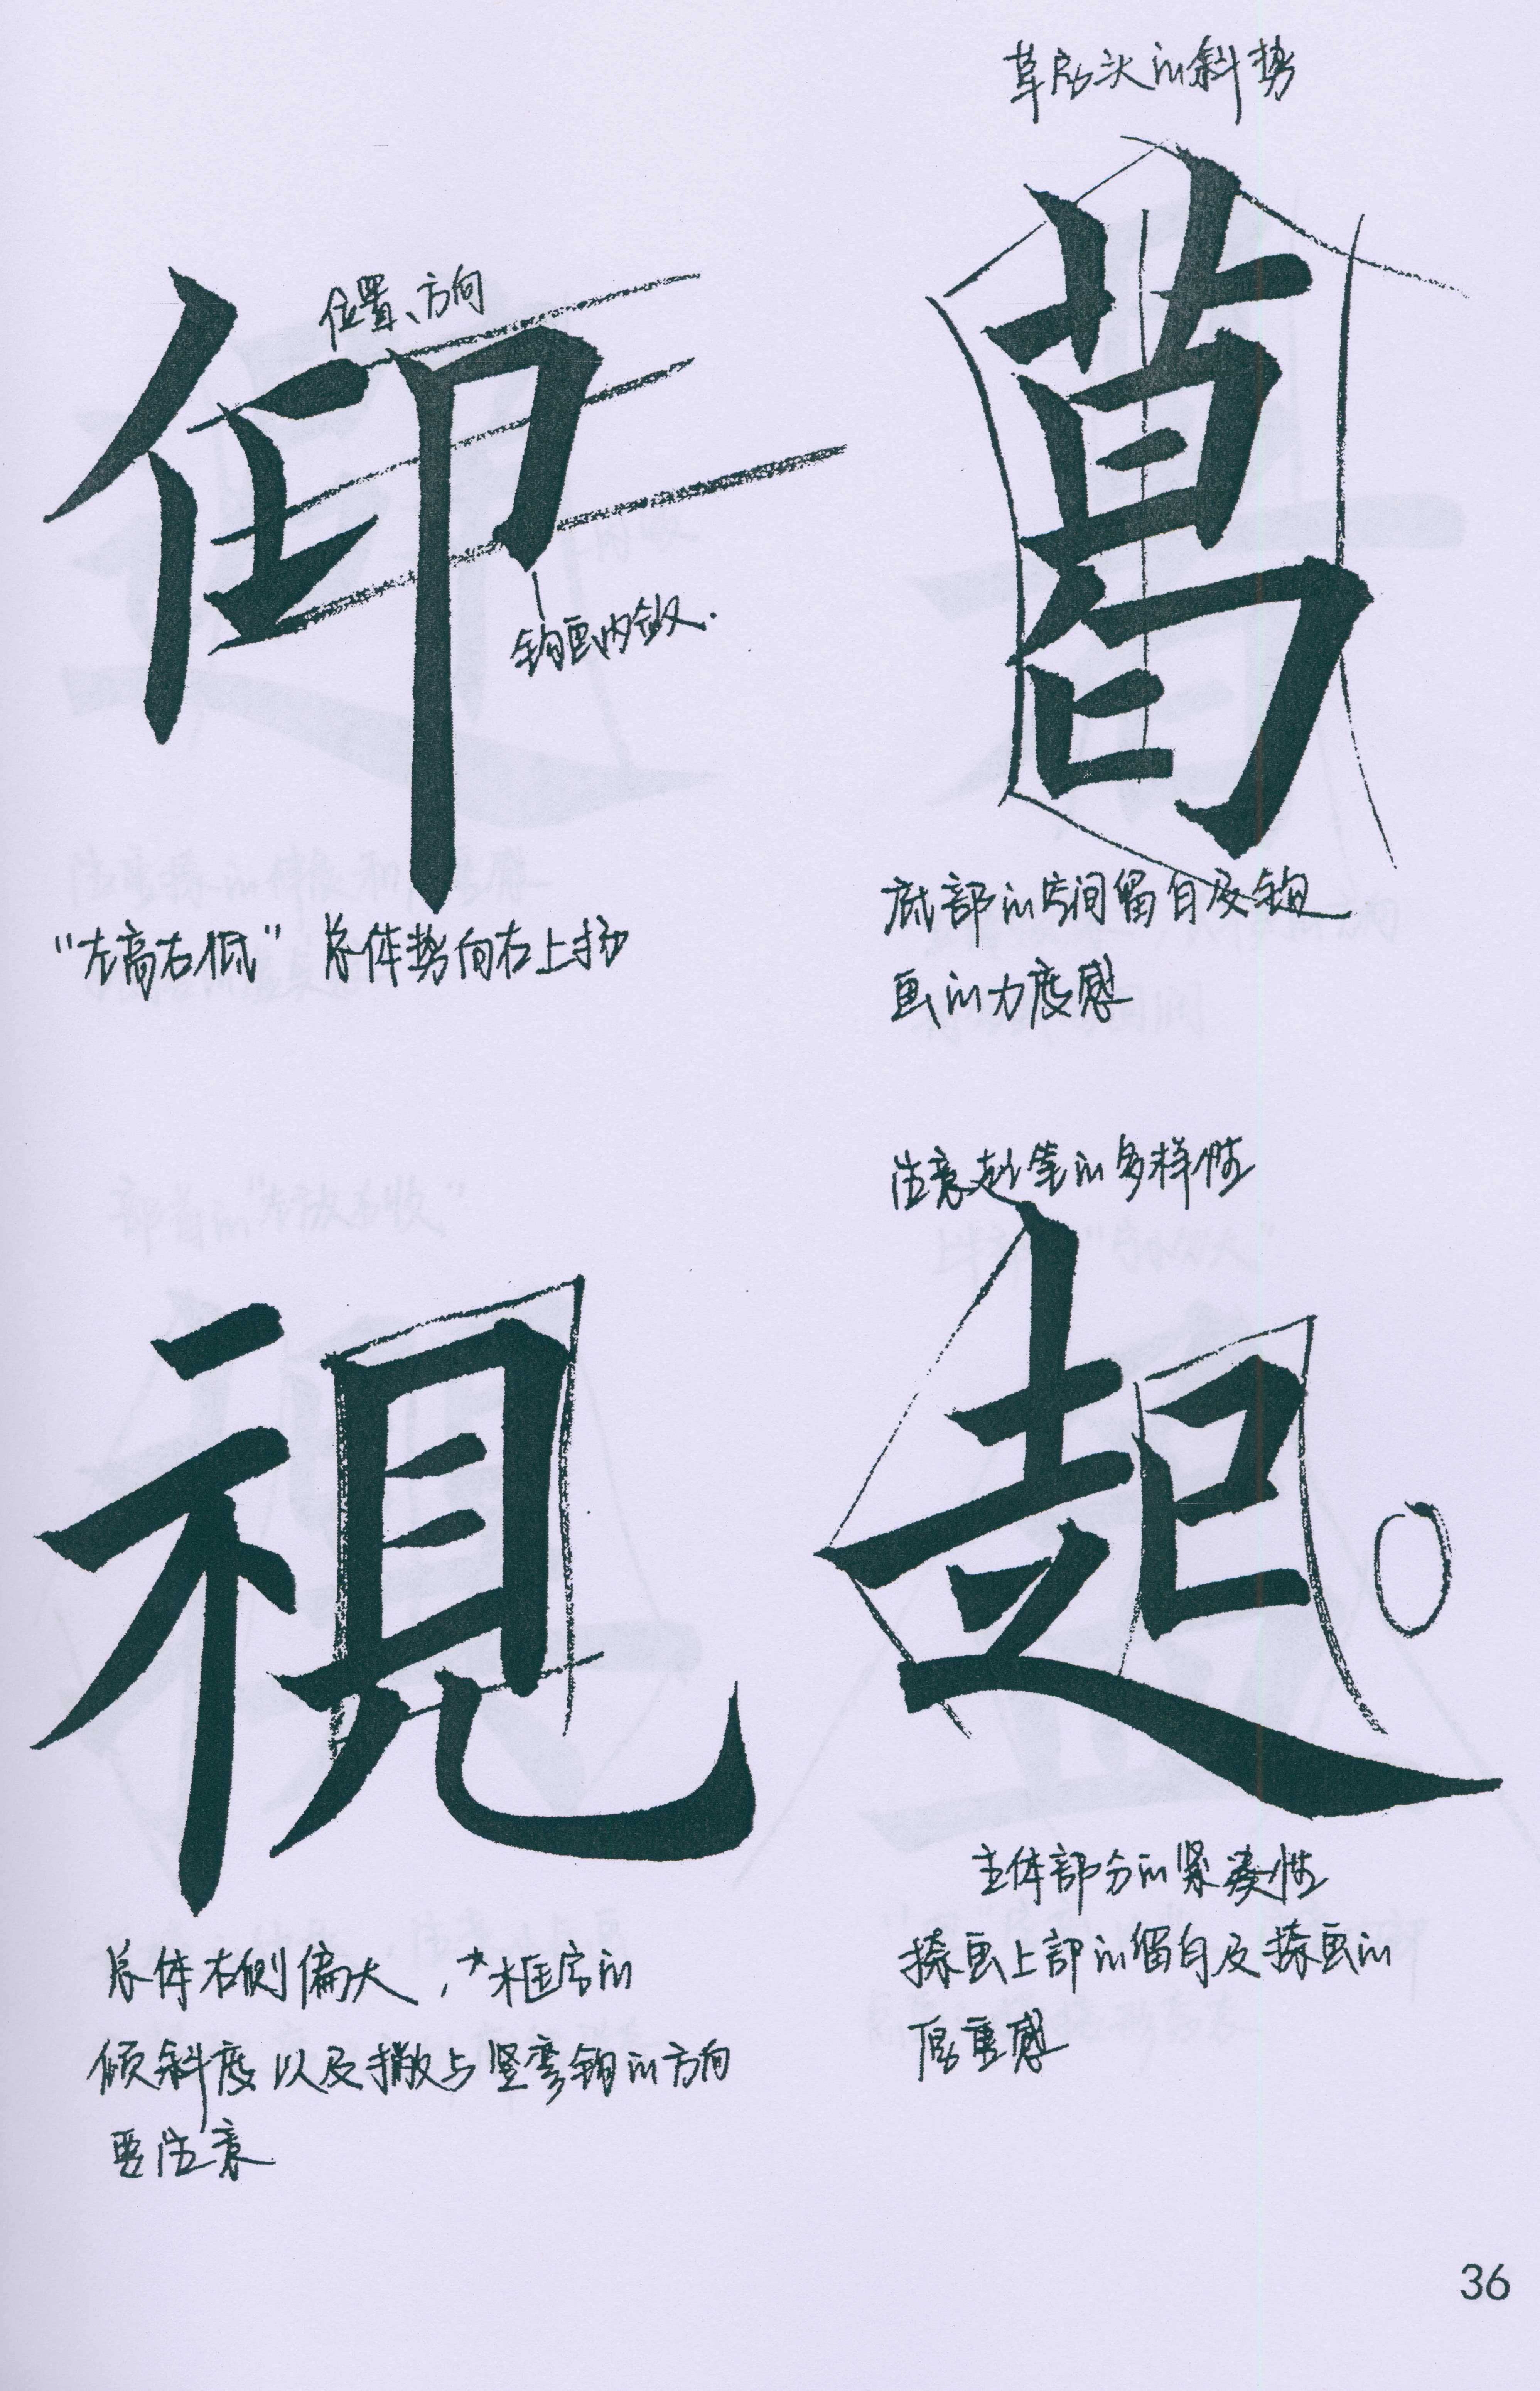 草字头的斜势
萬
位置、方向
仰
钩画内敛.
底部的空间留白及钩
画的力度感
“左高右低” 总体势向右上扬
注意起笔的多样性
起
視
主体部分的紧凑性
捺画上部的留白及捺画的
厚重感
总体右侧偏大，框字的
倾斜度以及撇与竖弯钩的方向
要注意
36